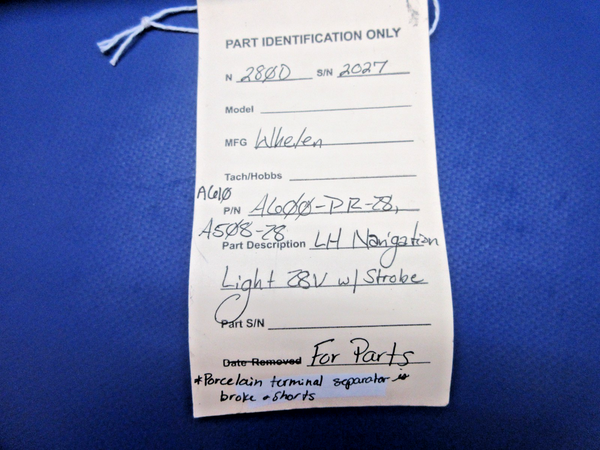 PART IDENTIFICATION ONLY
N 280D S/N 2027
Model
MFG Whelen
Tach/Hobbs
A610
P/N A600-PR-28,
A508-28
Part Description LH Navigation
Light 28V w/ Strobe
Part S/N
Date Removed For Parts
*Porcelain terminal separator is
broke & shorts